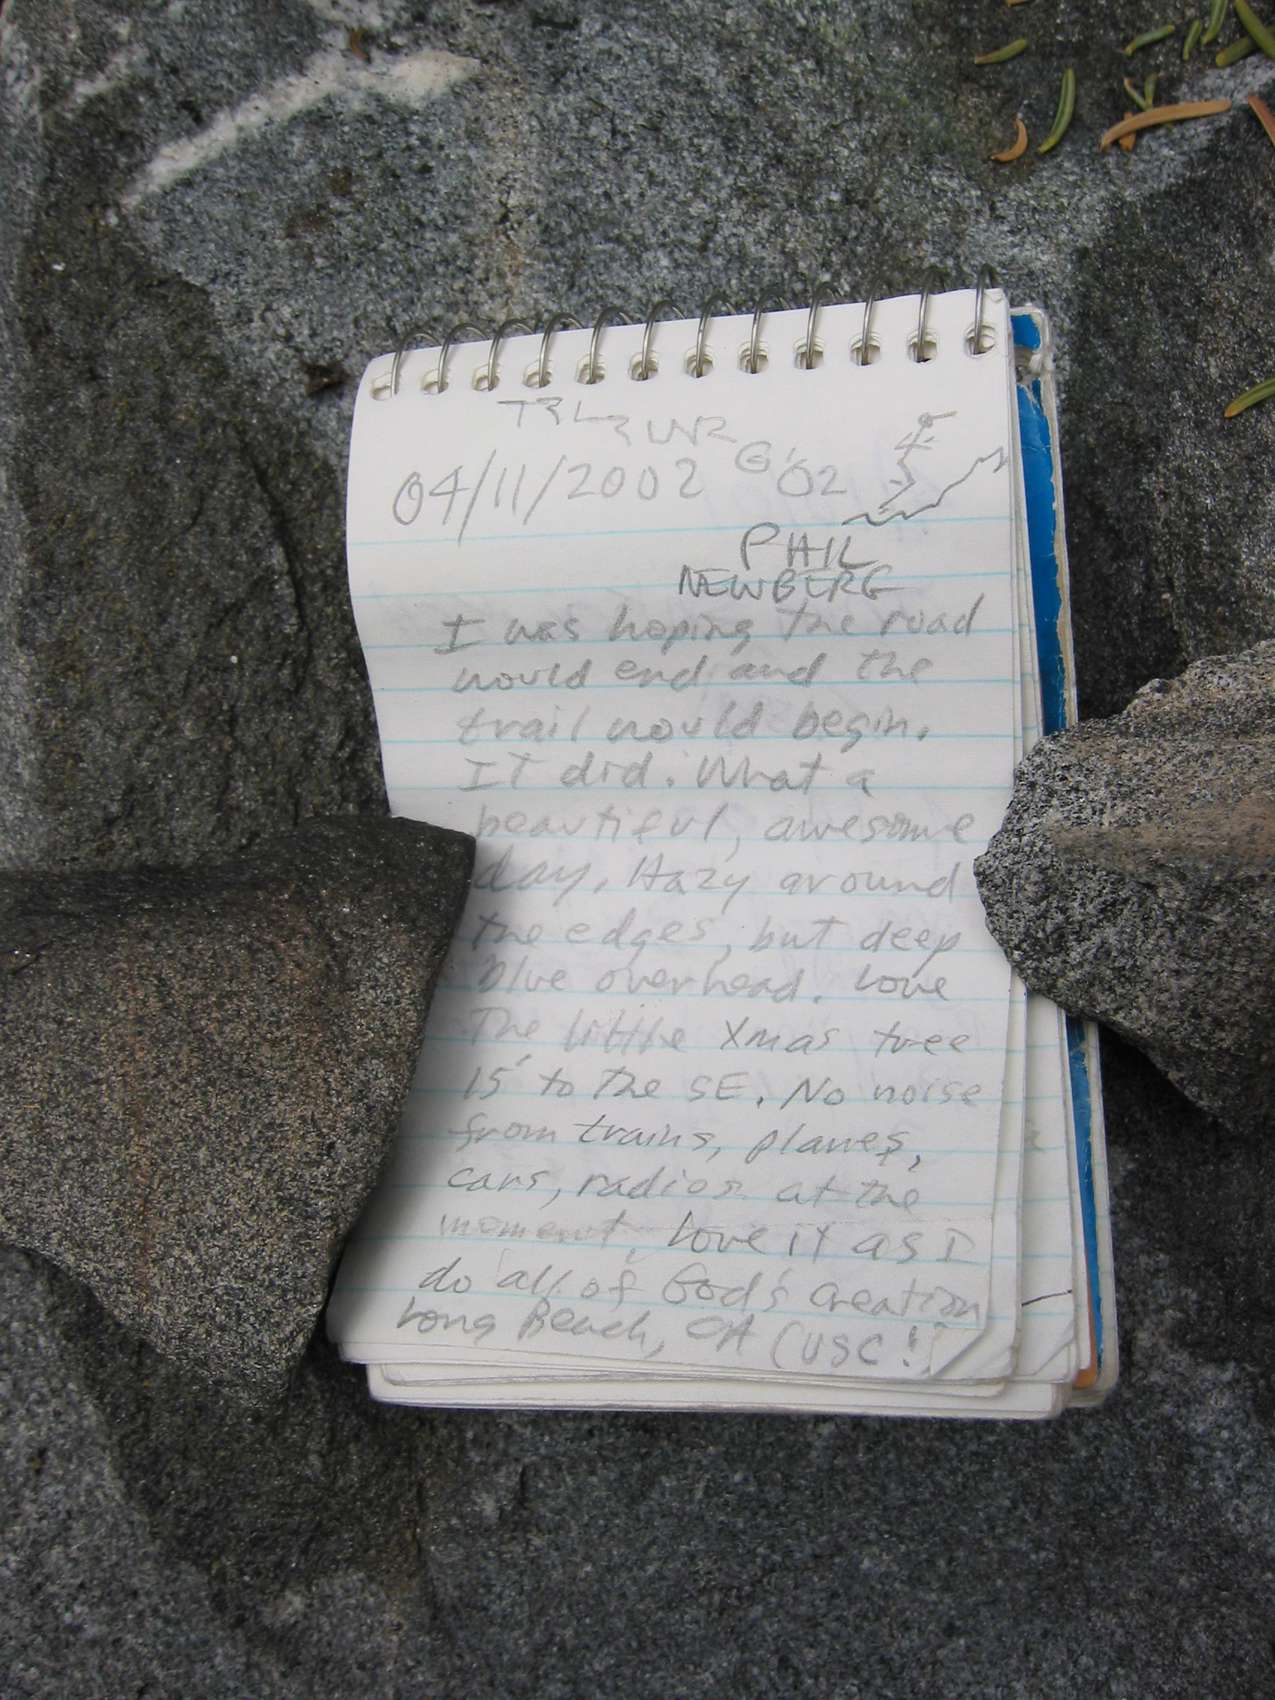 TRLRUNR
04/11/2002 G'02
PHIL
NEWBERG
I was hoping the road
would end and the
trail would begin.
IT did. What a
beautiful, awesome
day. Hazy around
the edges, but deep
blue overhead. Love
The little Xmas tree
15' to the SE. No noise
from trains, planes,
cars, radios at the
moment. Love it as I
do all of God's creation
Long Beach, CA (USC!)